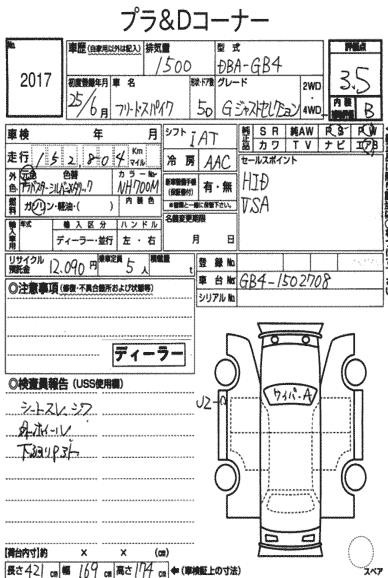 プラ&Dコーナー
No. 2017
車歴 (自家用以外は記入) 排気量 1500 型式 DBA-GB4
評価点 3.5
内装 B
初度登録年月 25/6月 車名 フリードスパイク 形状・ドア数 5D グレード Gジャストセレクション 2WD・4WD
車検 年 月
シフト IAT
走行 152,804 Km マイル
冷房 AAC
純正品 SR 純AW PS PW
カワ TV ナビ エアB
外色 元色 色替 アラバスターシルバーメタリック カラーNo. NH700M
有・無
燃料 ガソリン・軽油・( ) 内装色
名義変更期限
月 日
セールスポイント
HID
VSA
輸入車用 年式 輸入区分 ハンドル
ディーラー・並行 左・右
リサイクル預託金 12,090円 乗車定員 5人 積載量 t
登録No.
車台No. GB4-1502708
シリアルNo.
◎注意事項 (修復・不具合箇所および状態等)
ディーラー
◎検査員報告 (USS使用欄)
シートスレ、シワ
外ホイール
ワイパーA
U2
【荷台内寸】約 × × (cm)
長さ 421 cm 幅 169 cm 高さ 174 cm ←(車検証上の寸法)
スペア